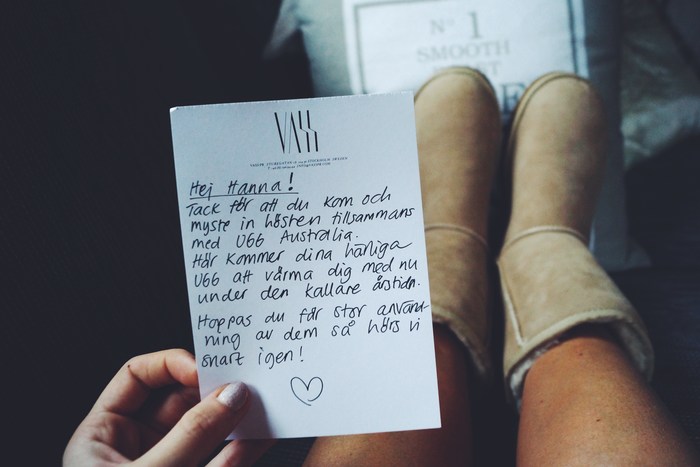 Nº 1
SMOOTH
VASS
Hej Hanna!
Tack för att du kom och
myste in hösten tillsammans
med UGG Australia.
Här kommer dina härliga
UGG att värma dig med nu
under den kallare årstidn.
Hoppas du får stor använd-
ning av dem så hörs vi
snart igen!